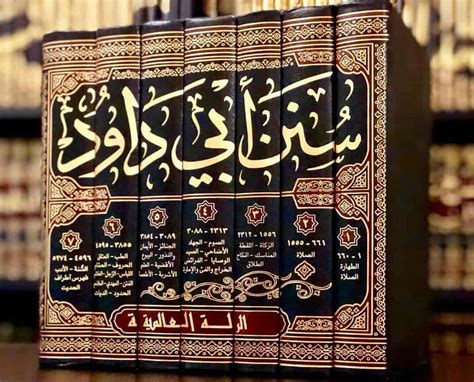 سُنَن أَبي دَاوُد
١
١ - ٦٦٠
الطهارة
الصلاة
٢
٦٦١ - ١٥٥٥
الصلاة
٣
١٥٥٦ - ٢٣١٢
الزكاة - اللقطة
المناسك - النكاح
الطلاق
٤
٢٣١٣ - ٣٠٨٨
الصوم - الجهاد
الأضاحي - الصيد
الوصايا - الفرائض
الخراج والفيء والإمارة
٥
٣٠٨٩ - ٣٨٥٤
الجنائز - الأيمان
والنذور - البيوع
الأقضية - العلم
الأشربة - الأطعمة
٦
٣٨٥٥ - ٤٥٩٥
الطب - العتاق
الحروف -
اللباس -
الحدود - الديات
٧
٤٥٩٦ - ٥٢٧٤
السنة - الأدب
فهرس أطراف
الحديث
الرسالة العالمية